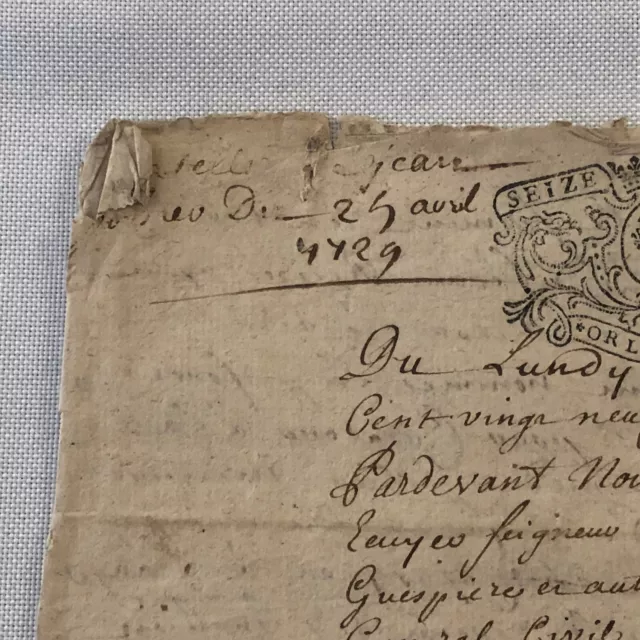 Jean
Du 25 avril
1729
SEIZE
ORL
Du Lundy
Cent vingt neuf
Pardevant Nou
Ecuyer seigneur
Guespiere et aut
General Civil